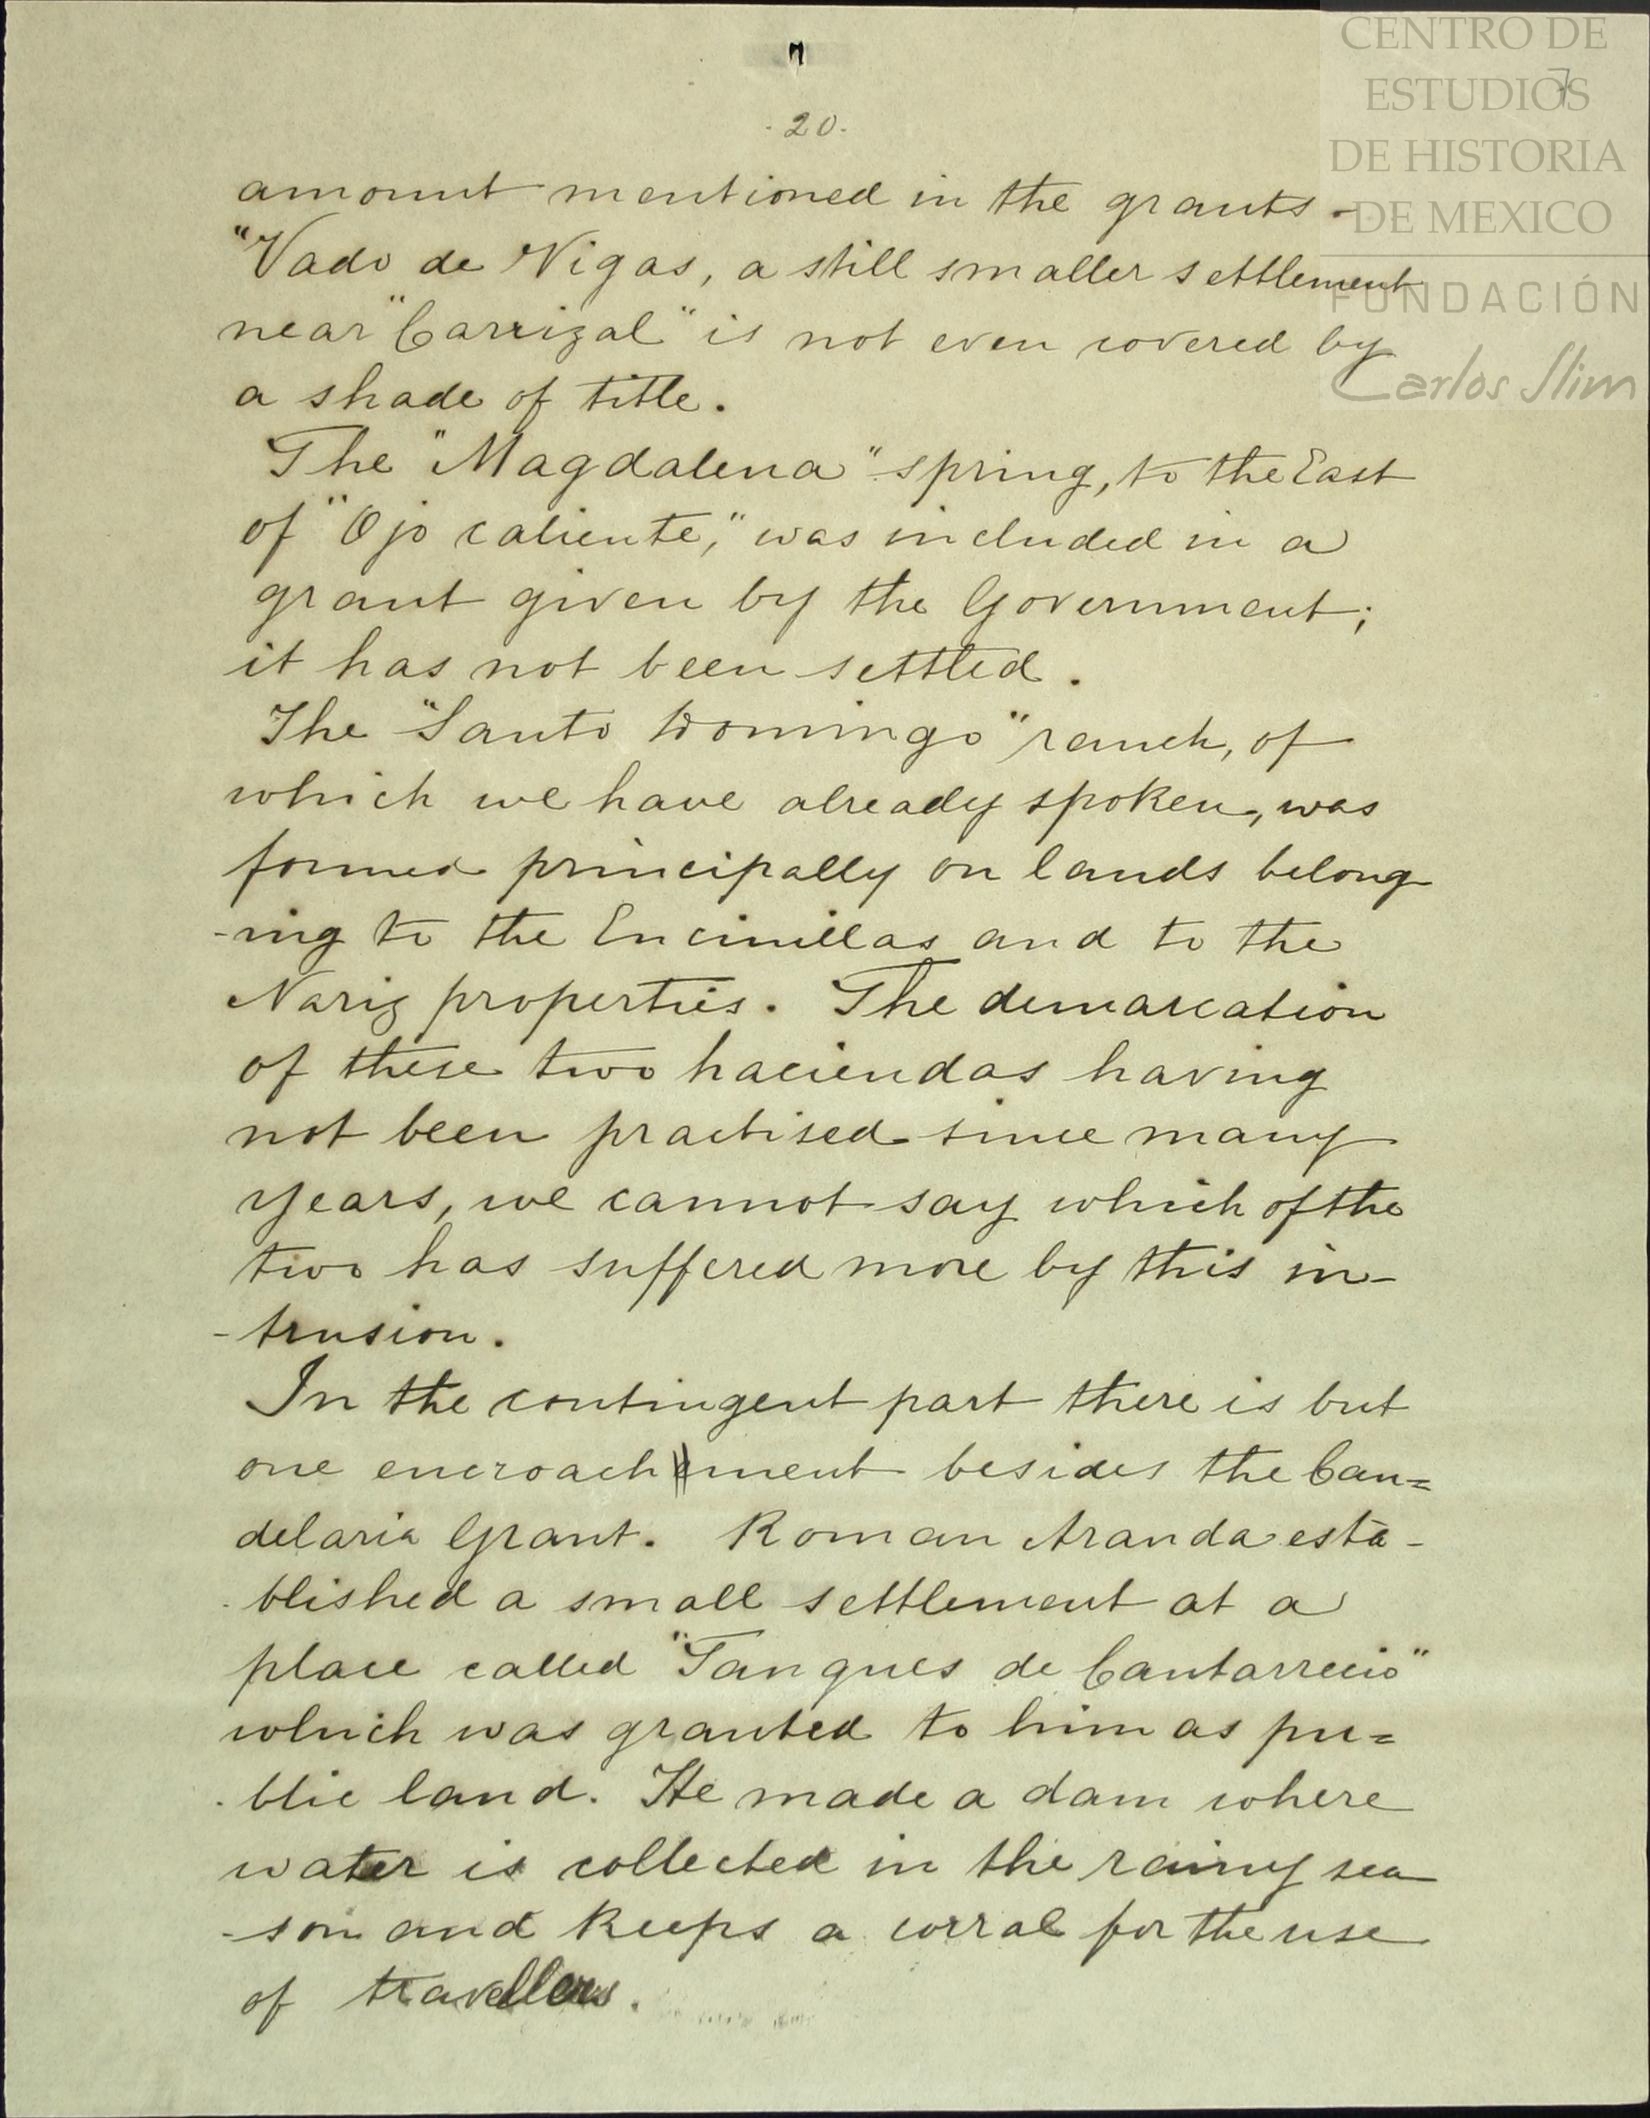 7
7
- 20 -
amount mentioned in the grants.
"Vado de Nigas, a still smaller settlement
near "Carrizal" is not even covered by
a shade of title.
The "Magdalena" spring, to the East
of "Ojo caliente," was included in a
grant given by the Government;
it has not been settled.
The "Santo Domingo" ranch, of
which we have already spoken, was
formed principally on lands belong
-ing to the Encinillas and to the
Nariz properties. The demarcation
of these two haciendas having
not been practised since many
years, we cannot say which of the
two has suffered more by this in-
-trusion.
In the contingent part there is but
one encroachment besides the Can=
delaria Grant. Roman Aranda esta-
-blished a small settlement at a
place called "Tanques de Cantarrecio"
which was granted to him as pu=
-blic land. He made a dam where
water is collected in the rainy sea
-son and keeps a corral for the use
of travellers.
CENTRO DE
ESTUDIOS
DE HISTORIA
DE MEXICO
FUNDACIÓN
Carlos Slim